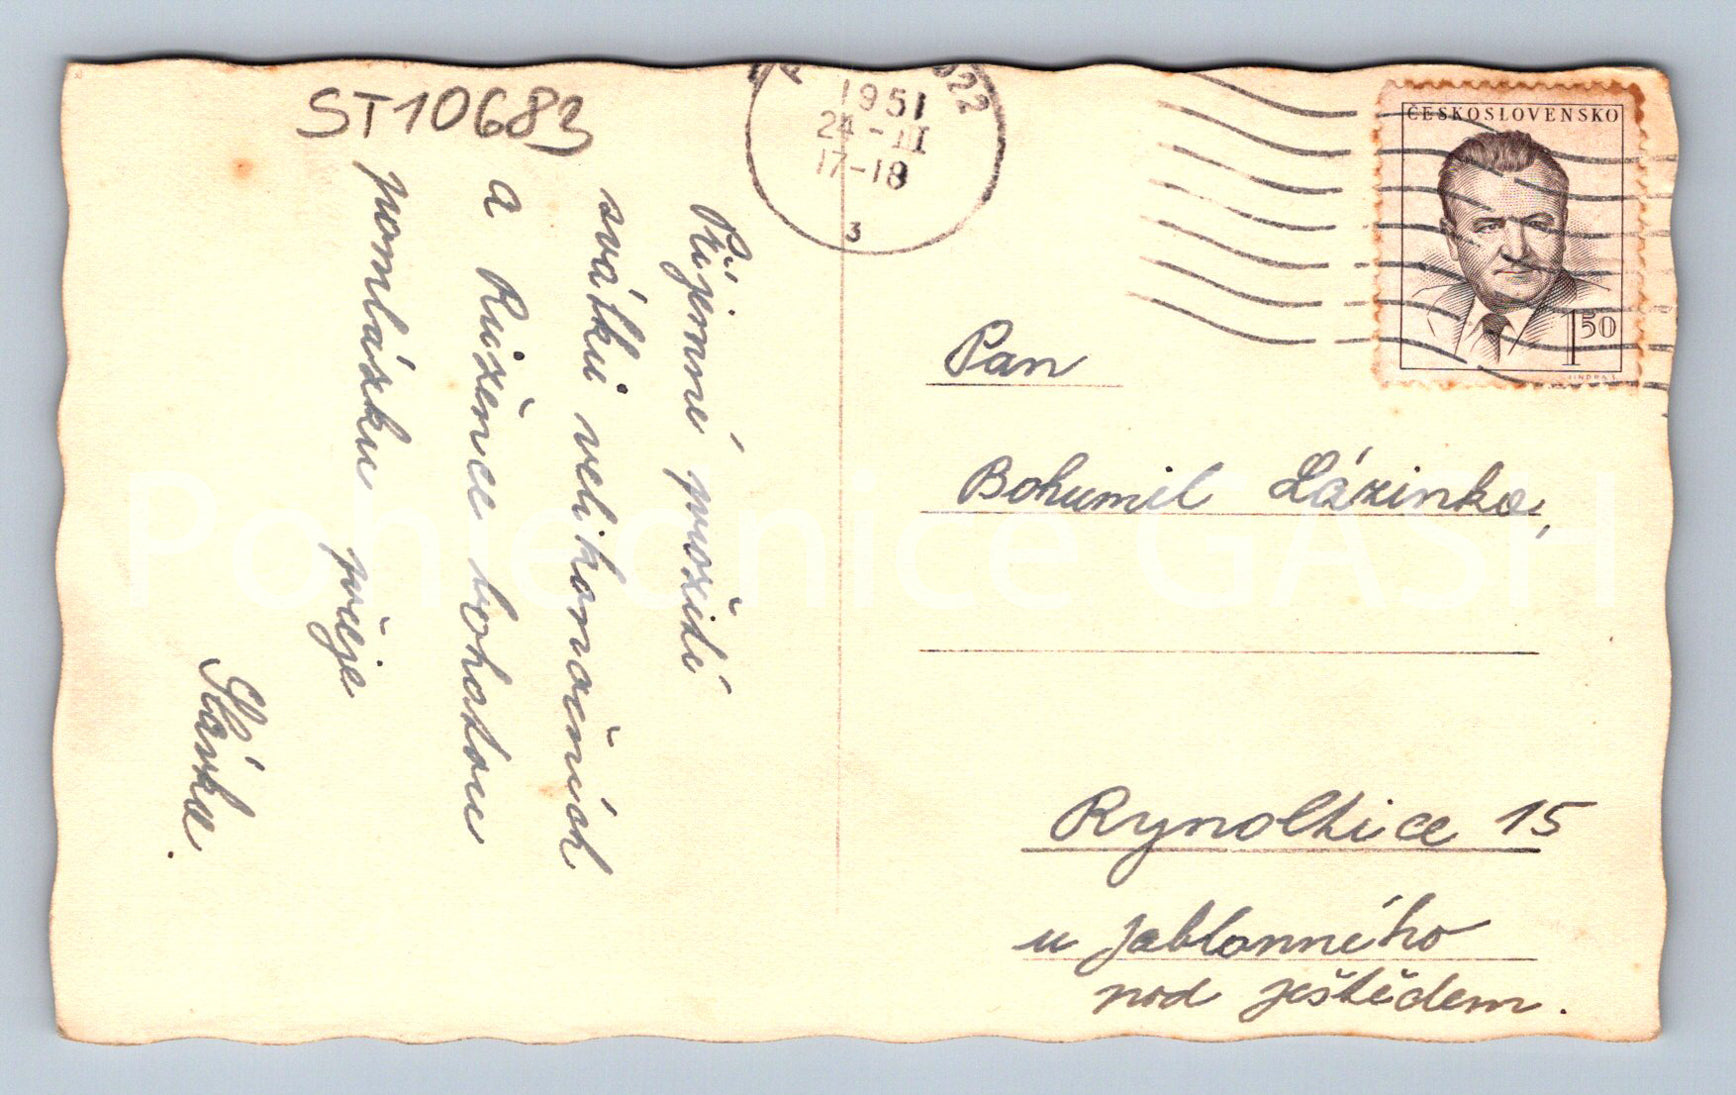 ST10683
Příjemné prožití
svátků velikonočních
a Růžence bohatou
pomlázku přeje
Slávka.
1951
24-III
17-18
3
ČESKOSLOVENSKO
1 50
Pan
Bohumil Lázinka,
Rynoltice 15
u Jablonného
pod Ještědem.
Pohlednice GASH